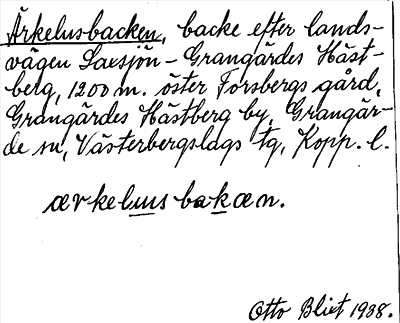 Ärkelusbacken, backe efter lands-
vägen Saxsjön - Grangärdes Häst-
berg, 1200 m. öster Forsbergs gård,
Grangärdes Hästberg by, Grangär-
de sn, Västerbergslags tg, Kopp. l.
ærkelus bakæn.
Otto Blixt 1938.